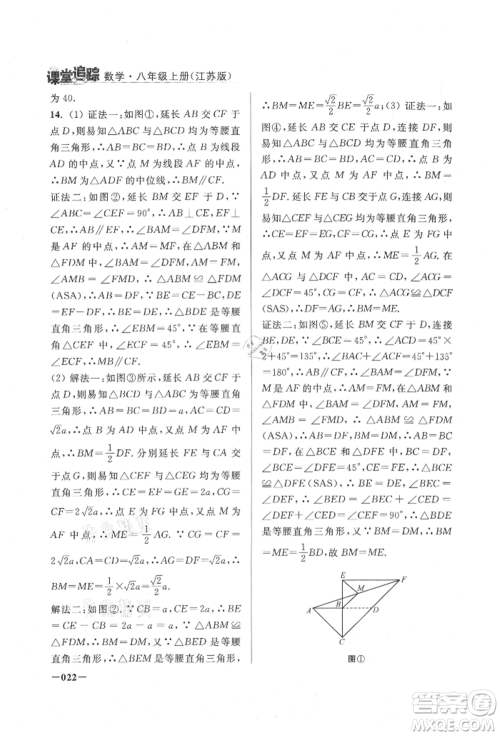 课堂追踪 数学·八年级上册(江苏版)
为 40.
14. (1) 证法一:如图①,延长 AB 交 CF 于
点 D,则易知△ABC 与△BCD 均为等腰直
角三角形,∴AB=BC=BD,∴点 B 为线
段 AD 的中点,又∵点 M 为线段 AF 的中
点,∴BM 为△ADF 的中位线,∴BM∥CF.
证法二:如图②,延长 BM 交 EF 于点 D,
∵∠ABC=∠CEF=90°,∴AB⊥CE,EF
⊥CE,∴AB∥EF,∴∠BAM=∠DFM,
∵M 是 AF 的中点,∴AM=MF,∵∠AMB
=∠FMD,∴△ABM≌△FDM
(ASA),∴AB=DF,∵BE=CE-BC,DE
=EF-DF,∴BE=DE,∴△BDE 是等腰
直角三角形,∴∠EBM=45°,∵在等腰直
角三角形 CEF 中,∠ECF=45°,∴∠EBM
=∠ECF,∴BM∥CF.
(2) 解法一:如图③所示,延长 AB 交 CE
于点 D,则易知△BCD 与△ABC 为等腰直
角三角形,∴AB=BC=BD=a,AC=CD=
√2a,∴点 B 为 AD 中点,又∵点 M 为 AF
的中点,∴BM=1/2DF. 分别延长 FE 与 CA
交于点 G,则易知△CEF 与△CEG 均为等
腰直角三角形,∴CE=EF=GE=2a,CG
=CF=2√2a,∴点 E 为 FG 中点,又∵点 M
为 AF 中点,∴ME=1/2AG. ∵CG=CF
=2√2a,CA=CD=√2a,∴AG=DF=√2a,
∴BM=ME=1/2×√2a=√2/2a.
解法二:如图②. ∵CB=a,CE=2a,∴BE
=CE-CB=2a-a=a,∵△ABM≌
△FDM,∴BM=DM,又∵△BED 是等腰直
角三角形,∴△BEM 是等腰直角三角形,
—022—
∴BM=ME=√2/2BE=√2/2a. (3) 证法一:如图
④,延长 AB 交 CE 于点 D,连接 DF,则易
知△ABC 与△BCD 均为等腰直角三角形,
∴AB=BC=BD,AC=CD,∴点 B 为 AD
中点,又∵点 M 为 AF 中点,∴BM=1/2DF.
延长 FE 与 CB 交于点 G,连接 AG,则易知
△CEF 与△CEG 均为等腰直角三角形,
∴CE=EF=EG,CF=CG,∴点 E 为 FG
中点,又∵点 M 为 AF 中点,∴ME=1/2AG.
在△ACG 与△DCF 中,∵AC=CD,
∠ACG=∠DCF,CG=CF,∴△ACG≌△DCF
(SAS),∴DF=AG,∴BM=ME.
证法二:如图⑤,延长 BM 交 CF 于点 D,
连接 BE,DE,∵∠BCE=45°,∴∠ACD=45°×
2+45°=135°,∴∠BAC+∠ACF=45°+135°
=180°,∴AB∥CF,∴∠BAM=∠DFM,
∵M 是 AF 的中点,∴AM=FM,在
△ABM 和△FDM 中,∵∠BAM=∠DFM,
AM=FM,∠AMB=∠FMD,∴△ABM≌△FDM
(ASA),∴AB=DF,BM=DM,∴AB=BC
=DF,在△BCE 和△DFE 中,∵BC=DF,
∠BCE=∠DFE=45°,CE=FE,∴△BCE≌△DFE
(SAS),∴BE=DE,∠BEC=∠DEF,
∴∠BED=∠BEC+∠CED=∠DEF+
∠CED=∠CEF=90°,∴△BDE 是等腰直
角三角形,又∵BM=DM,∴BM=ME
=1/2BD,故 BM=ME.
E F M A B D C
图①